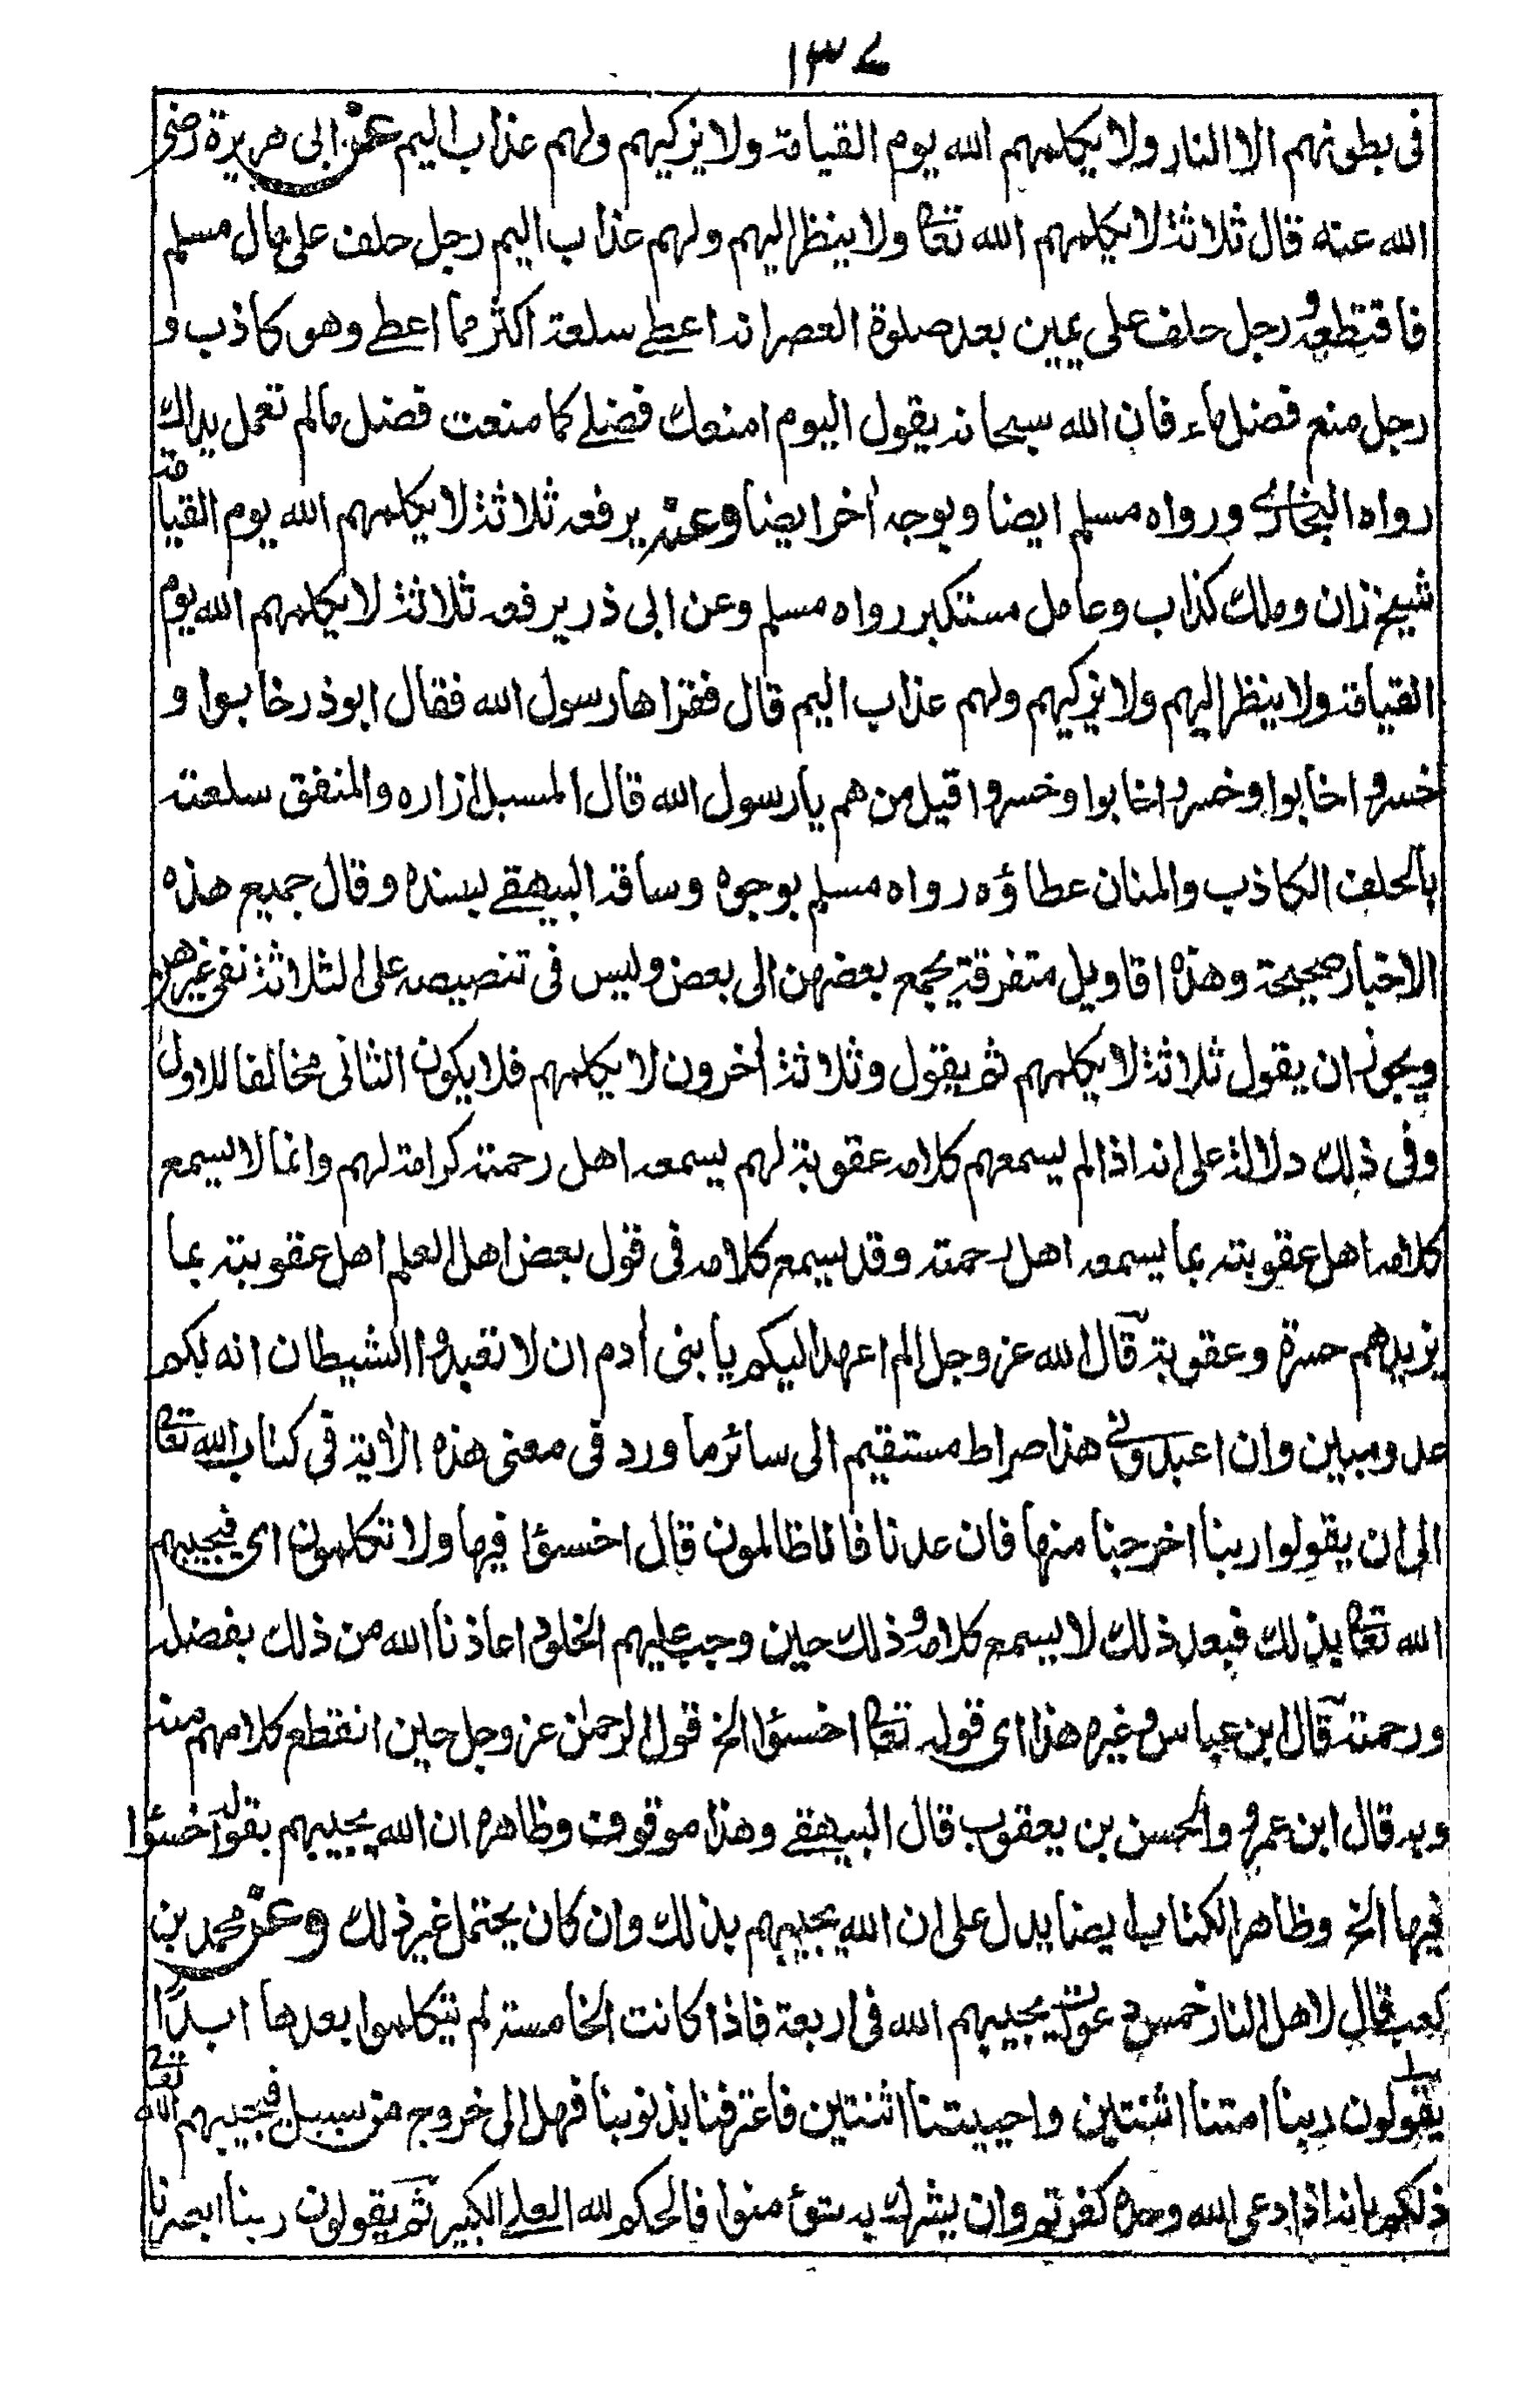 ١٣٧
فى بطونهم الا النار ولا يكلمهم الله يوم القيامة ولا يزكيهم ولهم عذاب اليم عن ابى هريرة رضى
الله عنه قال ثلاثة لا يكلمهم الله تعالى ولا ينظر اليهم ولهم عذاب اليم رجل حلف على مال مسلم
فاقتطعه ورجل حلف على يمين بعد صلوة العصر انه اعطى سلعة اكثر مما اعطى وهو كاذب و
رجل منع فضل ماء فان الله سبحانه يقول اليوم امنعك فضلى كما منعت فضل مالم تعمل يداك
رواه البخارى ورواه مسلم ايضا وبوجه أخر ايضا وعنه يرفعه ثلاثة لا يكلمهم الله يوم القيامة
شيخ زان وملك كذاب وعامل مستكبر رواه مسلم وعن ابى ذر يرفعه ثلاثة لا يكلمهم الله يوم
القيامة ولا ينظر اليهم ولا يزكيهم ولهم عذاب اليم قال فقرأها رسول الله فقال ابوذر خابوا و
خسروا خابوا وخسروا خابوا وخسروا قيل من هم يا رسول الله قال المسبل ازاره والمنفق سلعته
بالحلف الكاذب والمنان عطاؤه رواه مسلم بوجوه وساقه البيهقى بسنده وقال جميع هذه
الاخبار صحيحة وهذه اقاويل متفرقة يجمع بعضهن الى بعض وليس فى تنصيصه على الثلاثة نفى غيرهن
ويجوز ان يقول ثلاثة لا يكلمهم ثم يقول وثلاثة أخرون لا يكلمهم فلا يكون الثانى مخالفا للاول
وفى ذلك دلالة على انه اذا لم يسمعهم كلامه عقوبة لهم يسمعه اهل رحمته كرامة لهم وانما لا يسمع
كلامه اهل عقوبته بما يسمعه اهل رحمته وقد يسمع كلامه فى قول بعض اهل العلم اهل عقوبته بما
يزيدهم حسرة وعقوبة قال الله عز وجل الم اعهد اليكم يا بنى أدم ان لا تعبدوا الشيطان انه لكم
عدو مبين وان اعبدونى هذا صراط مستقيم الى سائر ما ورد فى معنى هذه الأية فى كتاب الله تعالى
الى ان يقولوا ربنا اخرجنا منها فان عدنا فانا ظالمون قال اخسئوا فيها ولا تكلمون اى فيجيبهم
الله تعالى بذلك فبعد ذلك لا يسمع كلامه وذلك حين وجب عليهم الخلود اعاذنا الله من ذلك بفضله
ورحمته قال ابن عباس وغيره هذا اى قوله تعالى اخسئوا الخ قول الرحمن عز وجل حين انقطع كلامهم منه
وبه قال ابن عمرو والحسن بن يعقوب قال البيهقى وهذا موقوف وظاهره ان الله يجيبهم بقوله اخسئوا
فيها الخ وظاهر الكتاب ايضا يدل على ان الله يجيبهم بذلك وان كان يحتمل غير ذلك وعن محمد بن
كعب قال لاهل النار خمس دعوات يجيبهم الله فى اربعة فاذا كانت الخامسة لم يتكلموا بعدها ابدًا
يقولون ربنا امتنا اثنتين واحييتنا اثنتين فاعترفنا بذنوبنا فهل الى خروج من سبيل فيجيبهم الله تعالى
ذلكم بانه اذا دعى الله وحده كفرتم وان يشرك به تؤمنوا فالحكم لله العلى الكبير ثم يقولون ربنا ابصرنا